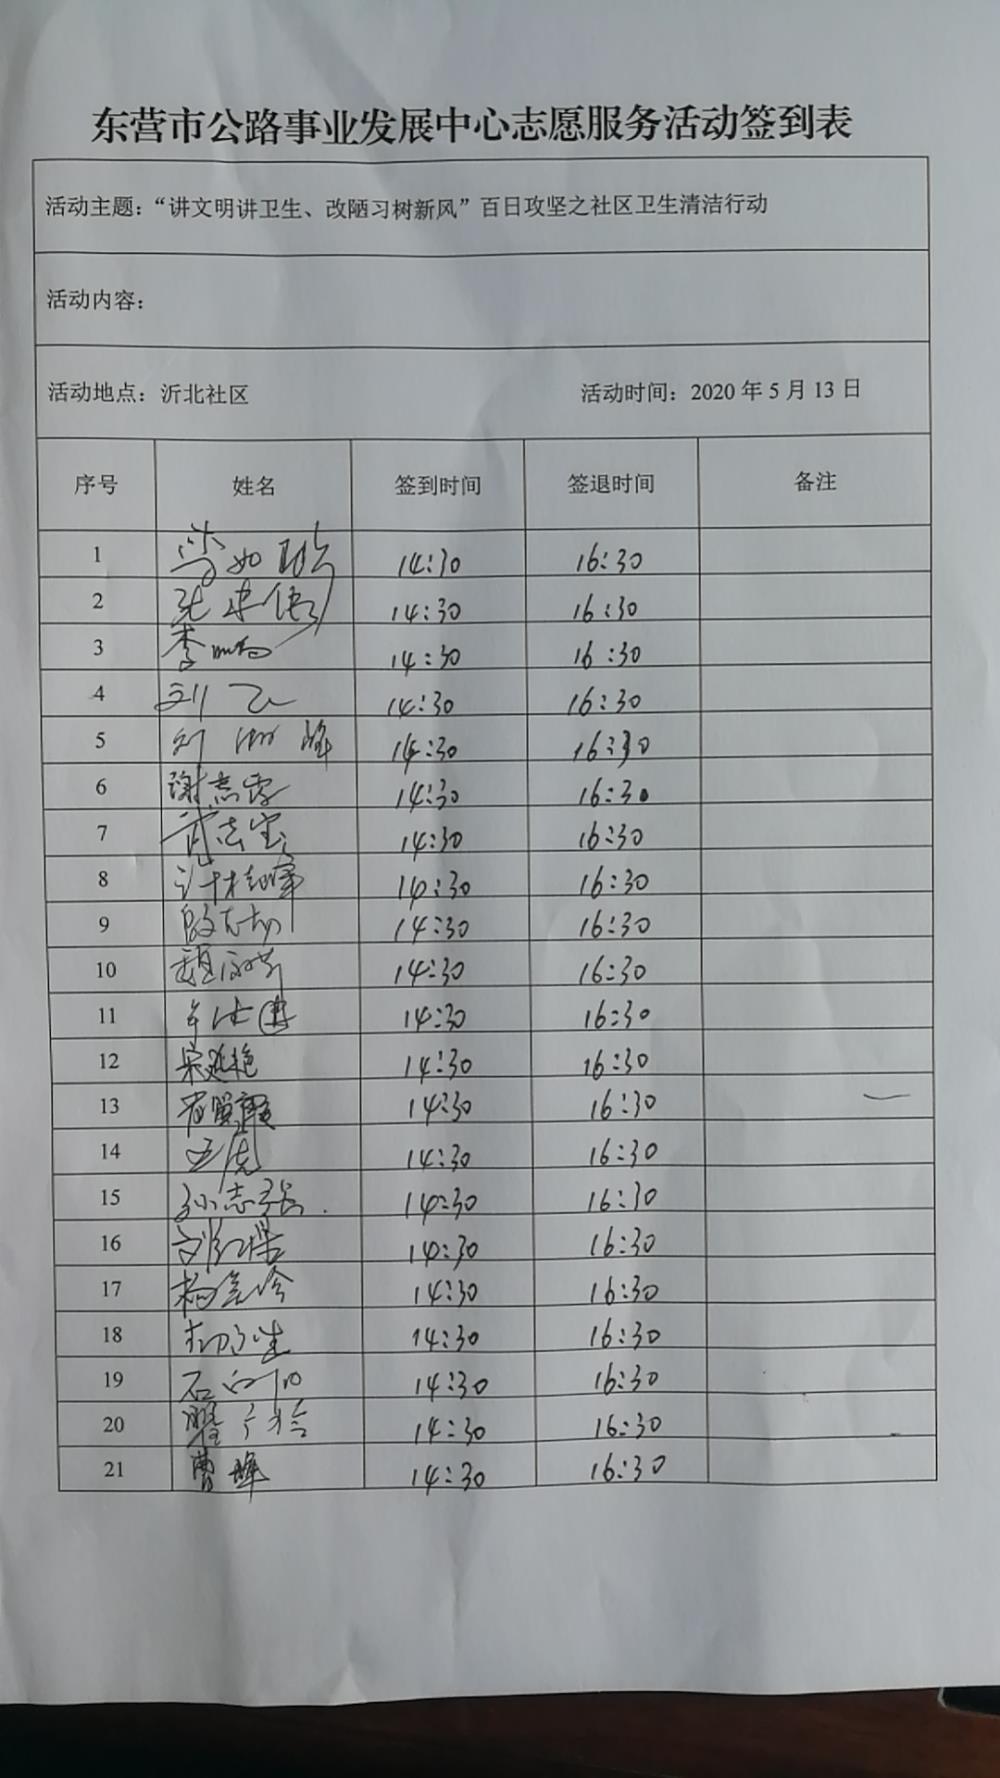 东营市公路事业发展中心志愿服务活动签到表
活动主题：“讲文明讲卫生、改陋习树新风”百日攻坚之社区卫生清洁行动
活动内容：
活动地点：沂北社区 活动时间：2020 年 5 月 13 日
序号 姓名 签到时间 签退时间 备注
1 14:30 16:30
2 14:30 16:30
3 李 14:30 16:30
4 刘 14:30 16:30
5 刘 峰 14:30 16:30
6 谢志 14:30 16:30
7 武志宝 14:30 16:30
8 许 14:30 16:30
9 殷 14:30 16:30
10 魏 14:30 16:30
11 14:30 16:30
12 宋延艳 14:30 16:30
13 14:30 16:30
14 王虎 14:30 16:30
15 孙志强 14:30 16:30
16 刘红 14:30 16:30
17 杨 14:30 16:30
18 14:30 16:30
19 石 14:30 16:30
20 14:30 16:30
21 曹峰 14:30 16:30